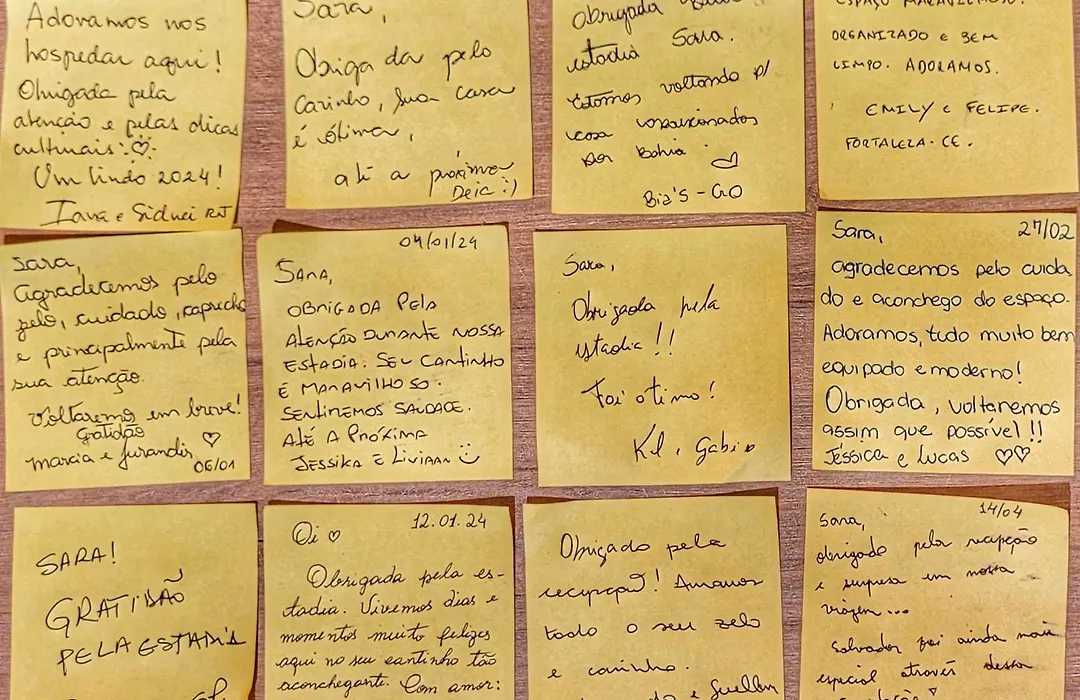 Adoramos nos
hospedar aqui!
Obrigada pela
atenção e pelas dicas
culturais! ♡
Um lindo 2024!
Iara e Sidnei RJ
Sara,
Obrigada pelo
carinho, sua casa
é ótima,
até a próxima
Deia :)
Obrigada
estadia Sara.
Estamos voltando p/
casa apaixonados
por Bahia. ♡
Bia's - GO
ESPAÇO MARAVILHOSO.
ORGANIZADO E BEM
LIMPO. ADORAMOS.
EMILY E FELIPE.
FORTALEZA - CE.
Sara,
Agradecemos pelo
zelo, cuidado, capricho
e principalmente pela
sua atenção.
Voltaremo em breve!
Gratidão ♡
marcia e Jurandir
06/01
04/01/24
SARA,
OBRIGADA PELA
ATENÇÃO DURANTE NOSSA
ESTADIA. SEU CANTINHO
É MARAVILHOSO.
SENTIREMOS SAUDADE.
ATÉ A PRÓXIMA
JESSIKA E LIVIAN
Sara,
Obrigada pela
estadia!!
Foi otimo!
Gabi
27/02
Sara,
agradecemos pelo cuida
do e aconchego do espaço.
Adoramos, tudo muito bem
equipado e moderno!
Obrigada, voltaremos
assim que possível!!
Jéssica e Lucas ♡♡
SARA!
GRATIDÃO
PELA ESTADIA
12.01.24
Oi ♡
Obrigada pela es-
tadia. Vivemos dias e
momentos muito felizes
aqui no seu cantinho tão
aconchegante. Com amor:
Obrigado pela
recepção! Amamos
todo o seu zelo
e carinho.
e Suellen
14/04
Sara,
obrigado pela recepção
e surpresa em nossa
viagem...
Salvador foi ainda mais
especial através dessa